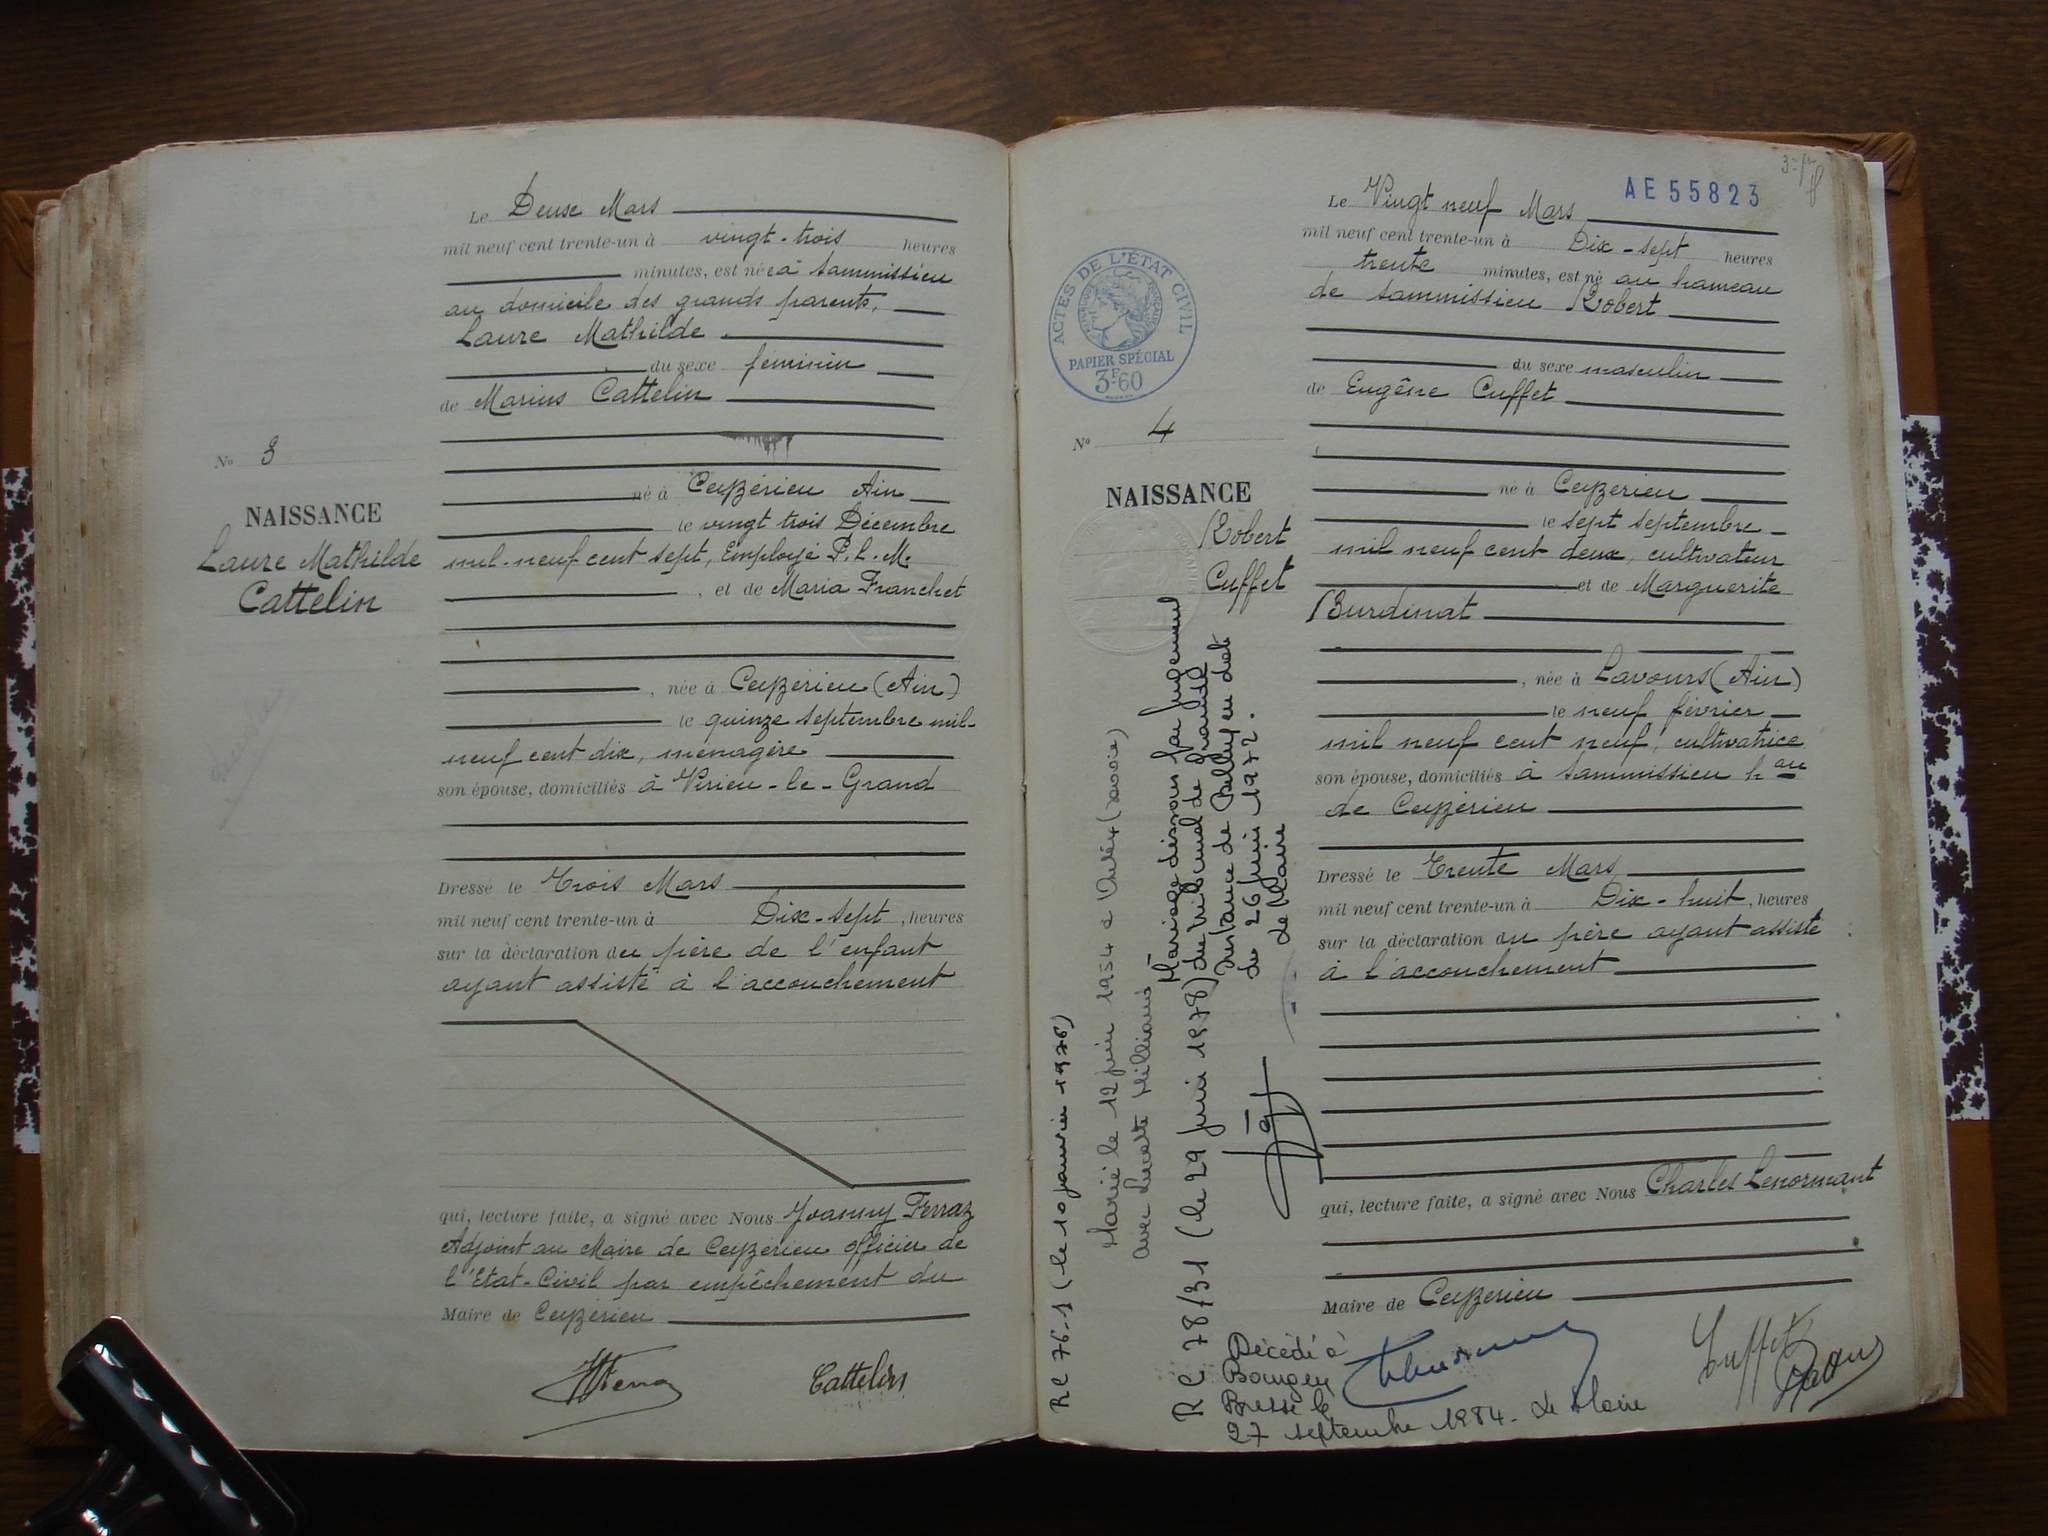 Le Deux Mars
mil neuf cent trente-un à vingt-trois heures
minutes, est née à Sammissieu
au domicile des grands parents,
Laure Mathilde
du sexe féminin
de Marius Cattelin
No 3
né à Ceyzérieu Ain
NAISSANCE
le vingt trois Décembre
Laure Mathilde
mil-neuf cent sept, Employé P.L.M.
Cattelin
, et de Maria Franchet
, née à Ceyzérieu (Ain)
le quinze septembre mil-
neuf cent dix, ménagère
son épouse, domiciliés à Virieu-le-Grand
Dressé le Trois Mars
mil neuf cent trente-un à Dix-sept, heures
sur la déclaration du père de l'enfant
ayant assisté à l'accouchement
qui, lecture faite, a signé avec Nous Joanny Ferraz
Adjoint au Maire de Ceyzérieu officier de
l'Etat-Civil par empêchement du
Maire de Ceyzérieu
Cattelin
AE 55823
Le Vingt neuf Mars
mil neuf cent trente-un à Dix-sept heures
trente minutes, est né au hameau
de Sammissieu Robert
du sexe masculin
de Eugène Cuffet
ACTES DE L'ÉTAT CIVIL
PAPIER SPÉCIAL
3F.60
No 4
NAISSANCE
Robert
Cuffet
né à Ceyzérieu
le sept septembre
mil neuf cent deux, cultivateur
et de Marguerite
Burdinat
, née à Lavours (Ain)
le neuf février
mil neuf cent neuf, cultivatrice
son épouse, domiciliés à Sammissieu hau
de Ceyzérieu
Dressé le Trente Mars
mil neuf cent trente-un à Dix-huit, heures
sur la déclaration du père ayant assisté
à l'accouchement
qui, lecture faite, a signé avec Nous Charles Lenormant
Maire de Ceyzérieu
Cuffet
RC 76-1 (le 10 janvier 1976)
Marié le 12 juin 1954 à (Savoie)
avec Lucette
RC 78/31 (le 29 juin 1978)
Mariage dissous par jugement
du tribunal de Grande
Instance de Belley en date
du 26 juin 1972.
le Maire
Décédé à
Bourg en
Bresse le
27 septembre 1984. Le Maire